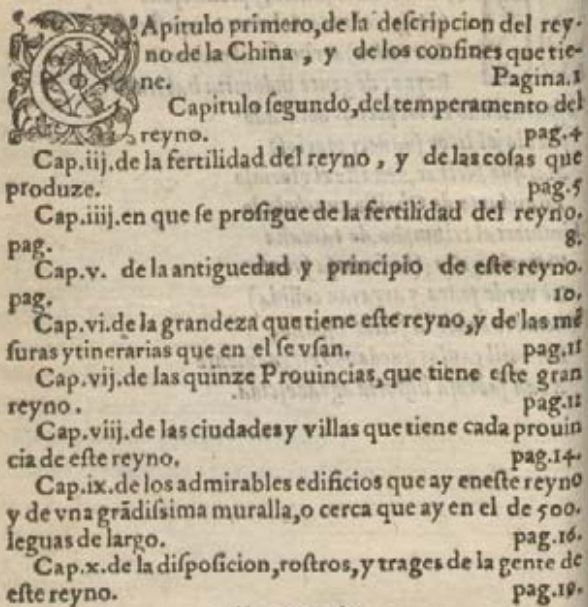 CApitulo primero,de la descripcion del rey-
no de la China , y de los confines que tie-
ne. Pagina.1
Capitulo segundo,del temperamento del
reyno. pag.4
Cap.iij.de la fertilidad del reyno , y de las cosas que
produze. pag.5
Cap.iiij.en que se prosigue de la fertilidad del reyno,
pag. 8.
Cap.v. de la antiguedad y principio de este reyno.
pag. 10.
Cap.vi.de la grandeza que tiene este reyno,y de las mē
suras ytinerarias que en el se vsan. pag.11
Cap.vij.de las quinze Prouincias,que tiene este gran
reyno. pag.12
Cap.viij.de las ciudades y villas que tiene cada prouin
cia de este reyno. pag.14.
Cap.ix.de los admirables edificios que ay eneste reyno
y de vna grādissima muralla,o cerca que ay en el de 500.
leguas de largo. pag.16.
Cap.x.de la disposicion,rostros,y trages de la gente de
este reyno. pag.19.